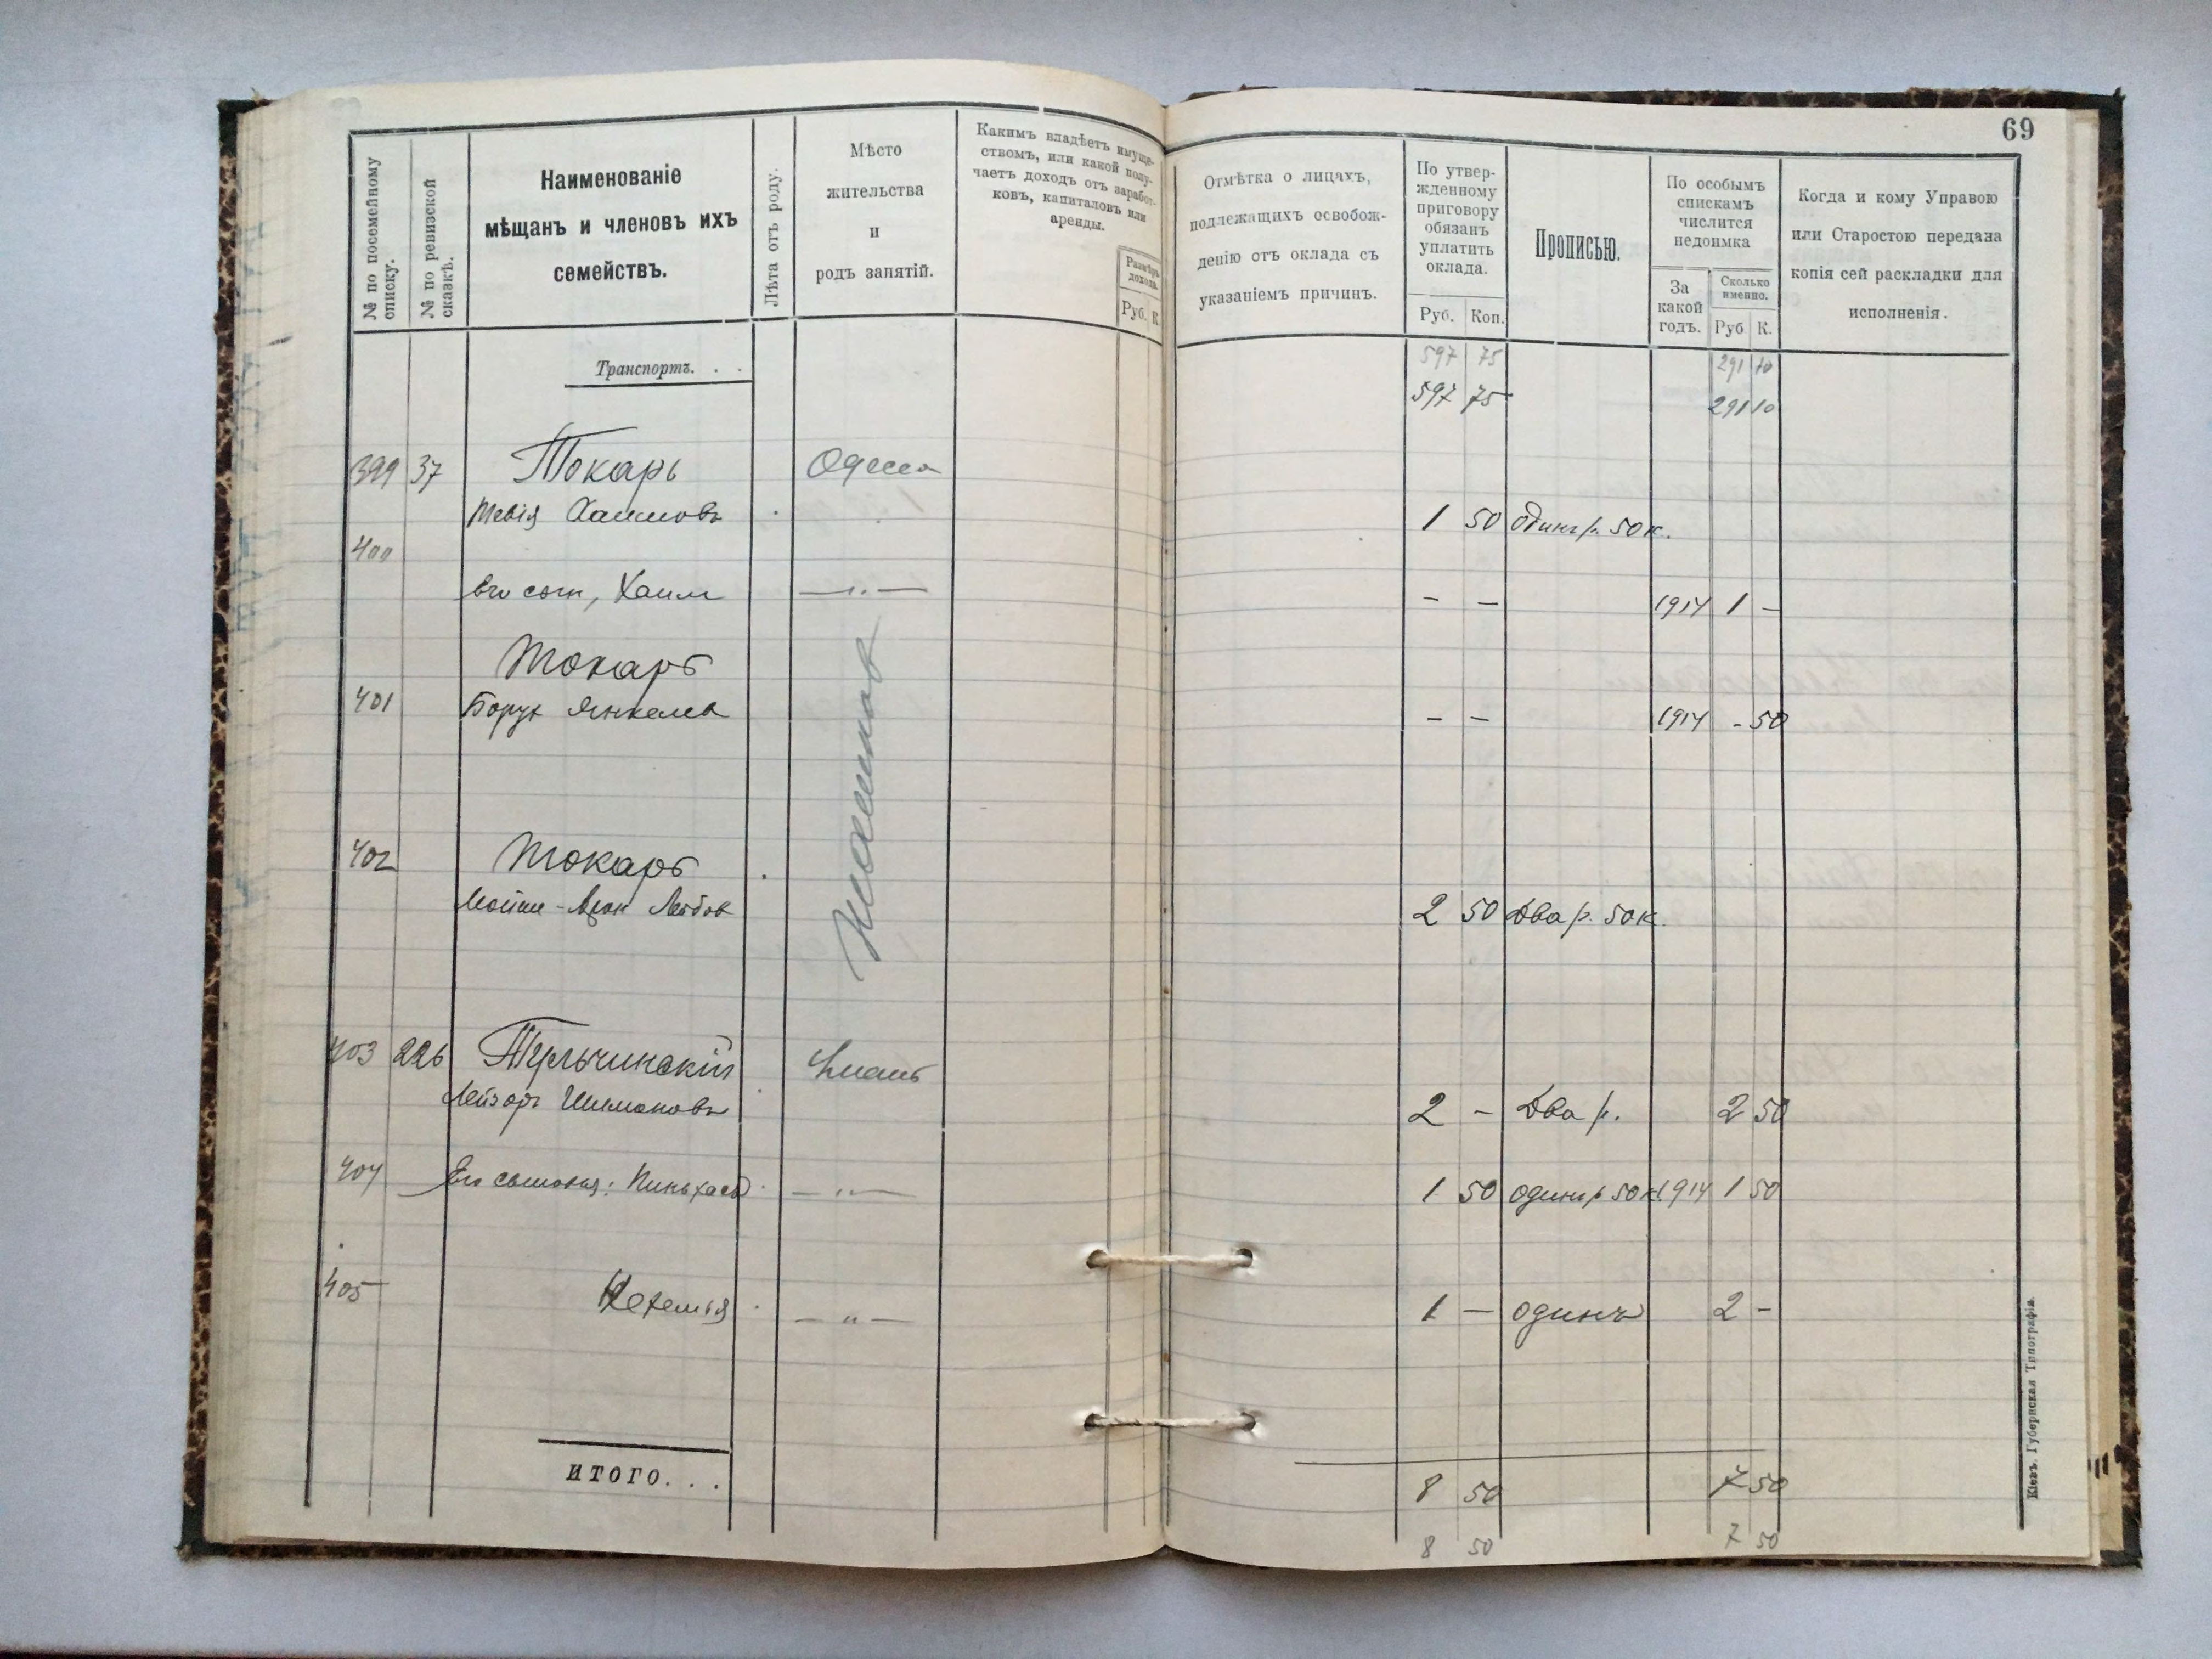 69
№ по посемейному списку.
№ по ревизской сказкѣ.
Наименованіе
мѣщанъ и членовъ ихъ
семействъ.
Лѣта отъ роду.
Мѣсто
жительства
и
родъ занятій.
Какимъ владѣетъ имуще-
ствомъ, или какой полу-
чаетъ доходъ отъ заработ-
ковъ, капиталовъ или
аренды.
Размѣръ
дохода.
Руб. К.
Отмѣтка о лицахъ,
подлежащихъ освобож-
денію отъ оклада съ
указаніемъ причинъ.
По утвер-
жденному
приговору
обязанъ
уплатить
оклада.
Руб. Коп.
Прописью.
По особымъ
спискамъ
числится
недоимка
За
какой
годъ.
Сколько
именно.
Руб К.
Когда и кому Управою
или Старостою передана
копія сей раскладки для
исполненія.
Транспортъ. . .
597 75 291 10
597 75 291 10
399 37 Токарь Одесса
Тевія Хаимовъ 1 50 Одинъ р. 50 к.
400
Его сын, Хаим — " — - - 1914 1 -
Токарь
401 Борух Янкелев - - 1914 - 50
402 Токарь
Мойше-Арон Лейбов 2 50 Два р. 50 к.
403 226 Тульчинскій Умань
Лейзоръ Шимоновъ 2 - Два р. 2 50
404 Его сыновья: Пиньхасъ — " — 1 50 один р 50 к 1914 1 50
405 Нехемья — " — 1 — одинъ 2 -
ИТОГО. . .
8 50 7 50
8 50 7 50
Кіевъ. Губернская Типографія.